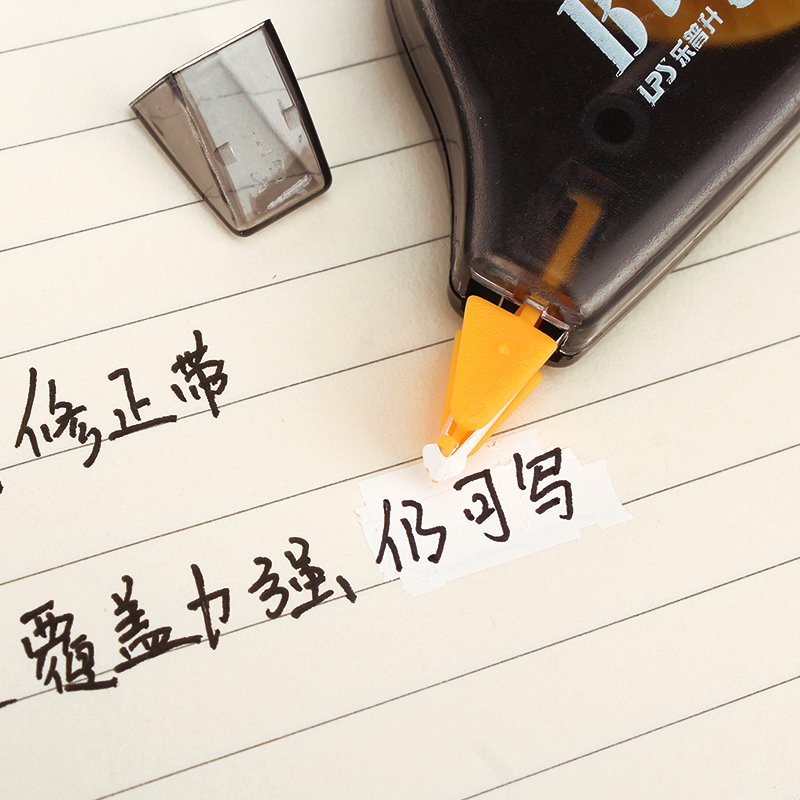 LPS 乐普升
修正带
覆盖力强、仍可写